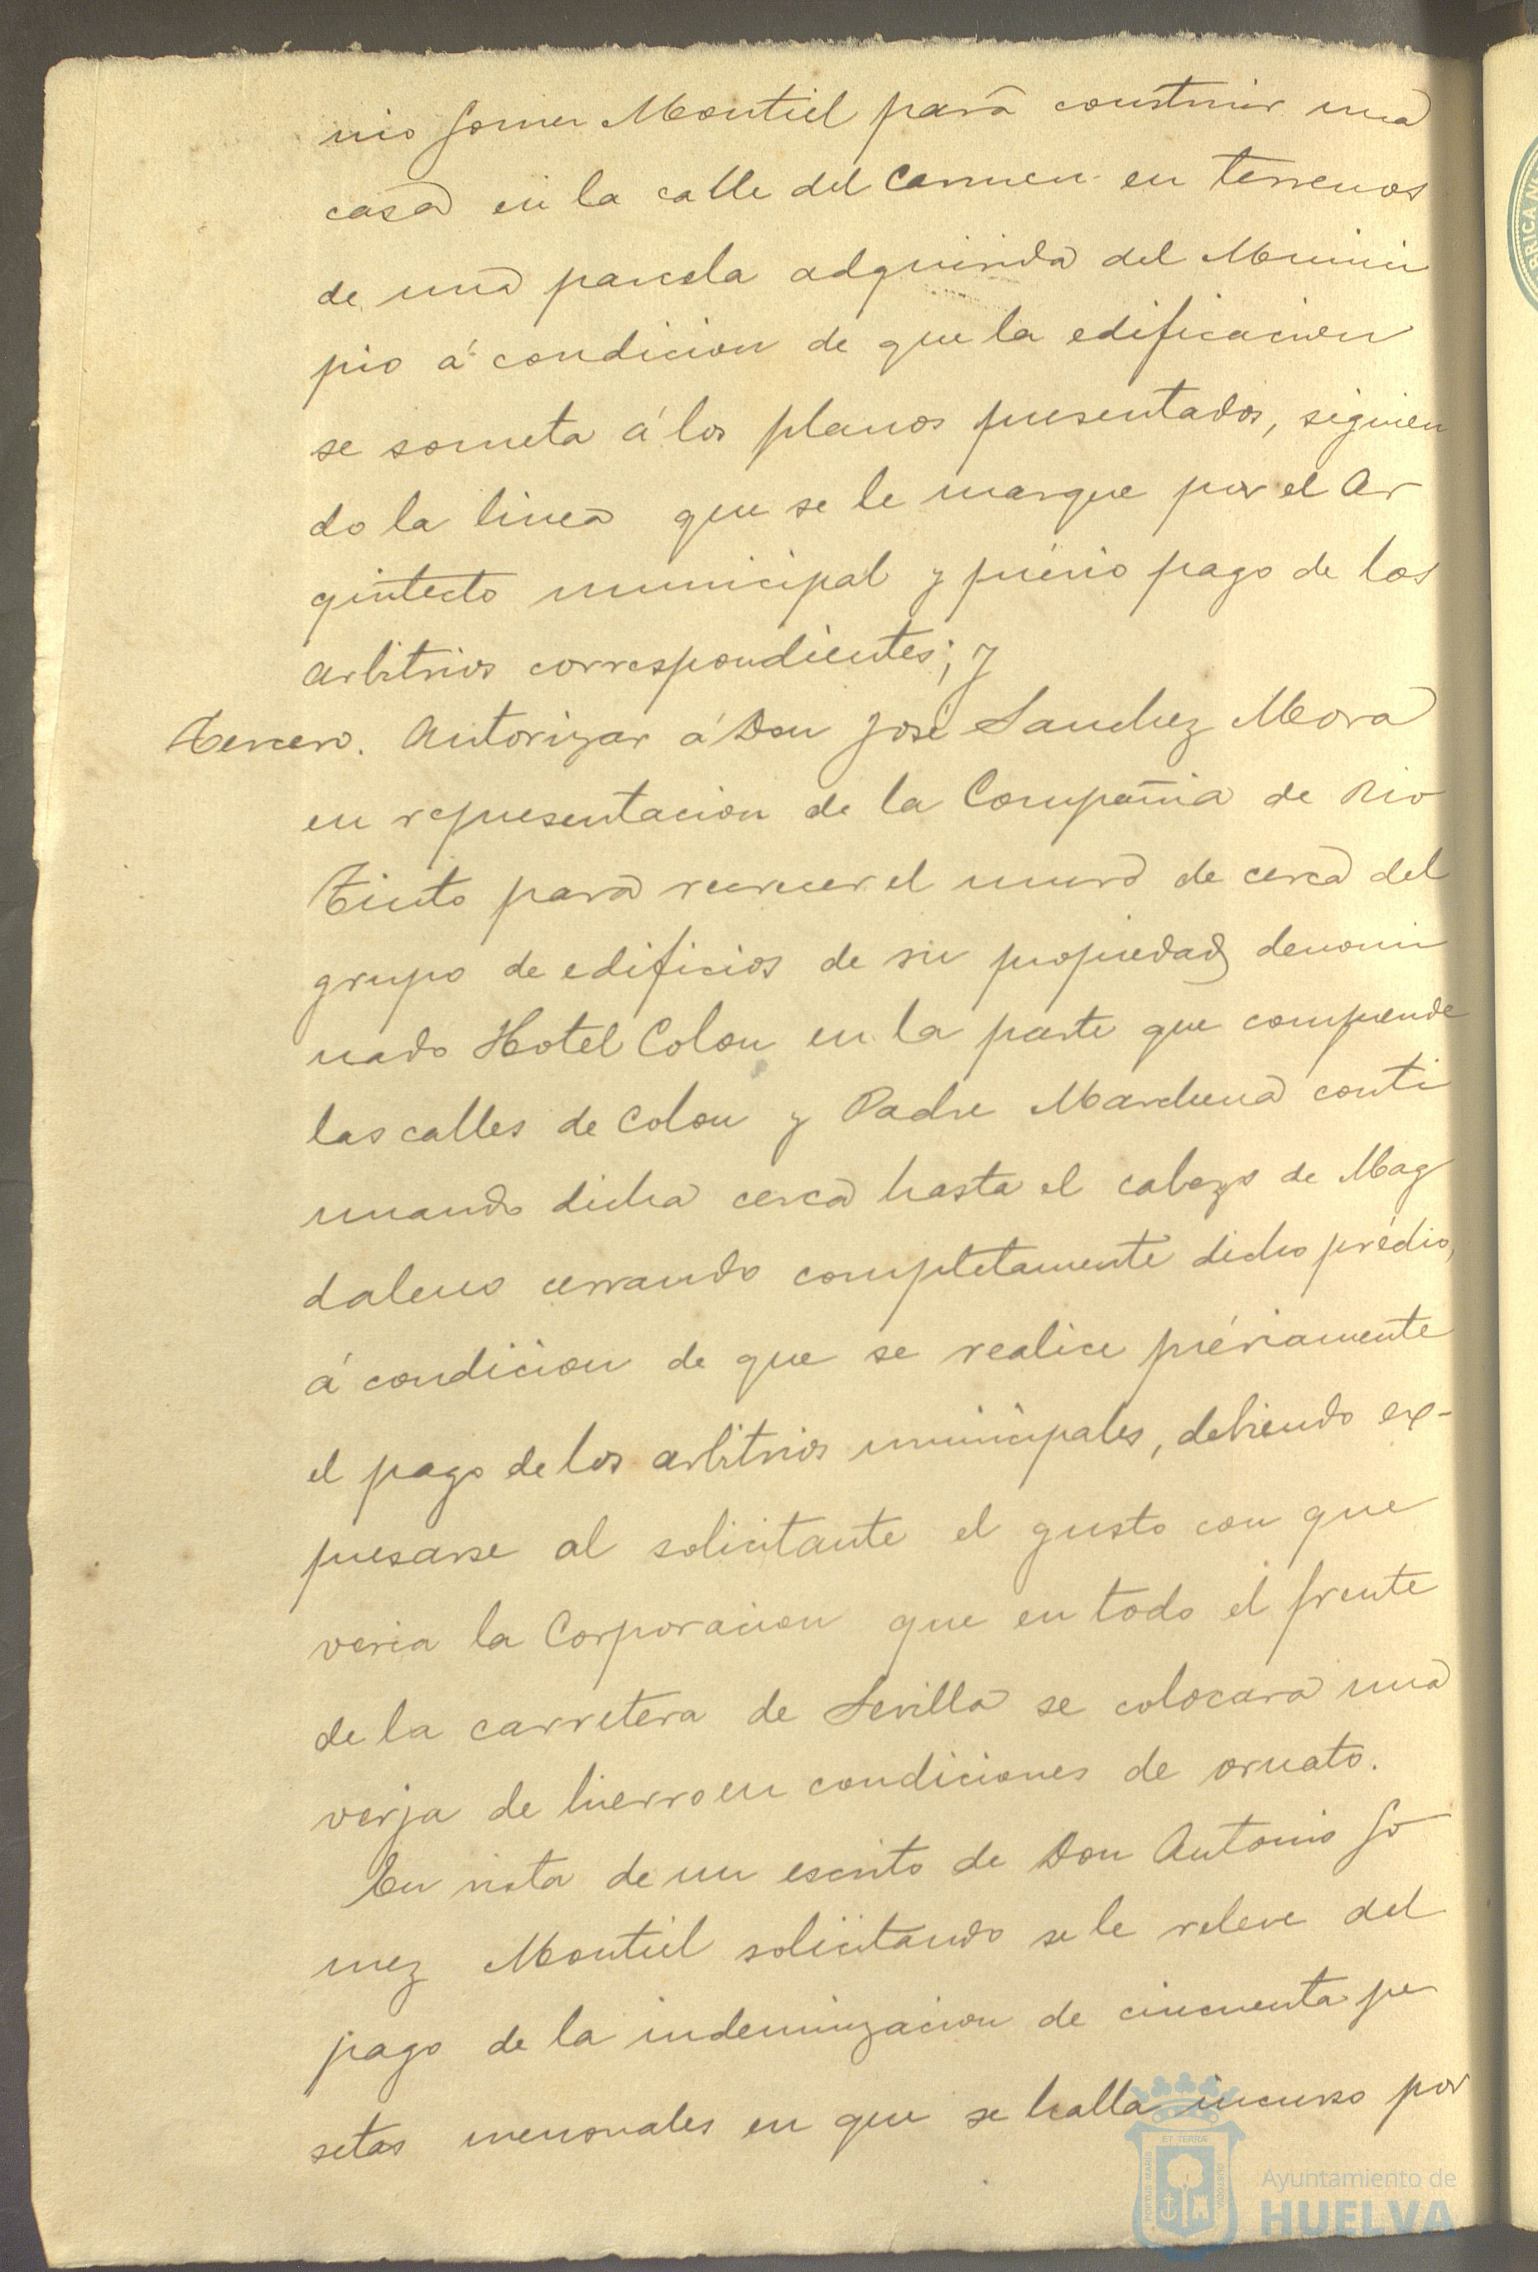 nio Gomez Montiel para construir una
casa en la calle del Carmen en terrenos
de una parcela adquirida del Munici
pio á condicion de que la edificacion
se someta á los planos presentados, siguien
do la linea que se le marque por el Ar
quitecto municipal y prévio pago de los
arbitrios correspondientes; y
Tercero. Autorizar á Don José Sanchez Mora
en representacion de la Compañia de Rio
Tinto para recrecer el muro de cerca del
grupo de edificios de su propiedad denomi
nado Hotel Colon en la parte que comprende
las calles de Colon y Padre Marchena conti
nuando dicha cerca hasta el cabezo de Mag
daleno cerrando completamente dicho prédio,
á condicion de que se realice préviamente
el pago de los arbitrios municipales, debiendo ex-
presarse al solicitante el gusto con que
veria la Corporacion que en todo el frente
de la carretera de Sevilla se colocara una
verja de hierro en condiciones de ornato.
En vista de un escrito de Don Antonio Go
mez Montiel solicitando se le releve del
pago de la indemnizacion de cincuenta pe
setas mensuales en que se halla incurso por
PORTUS MARIS
ET TERRÆ
CUSTODIA
Ayuntamiento de
HUELVA